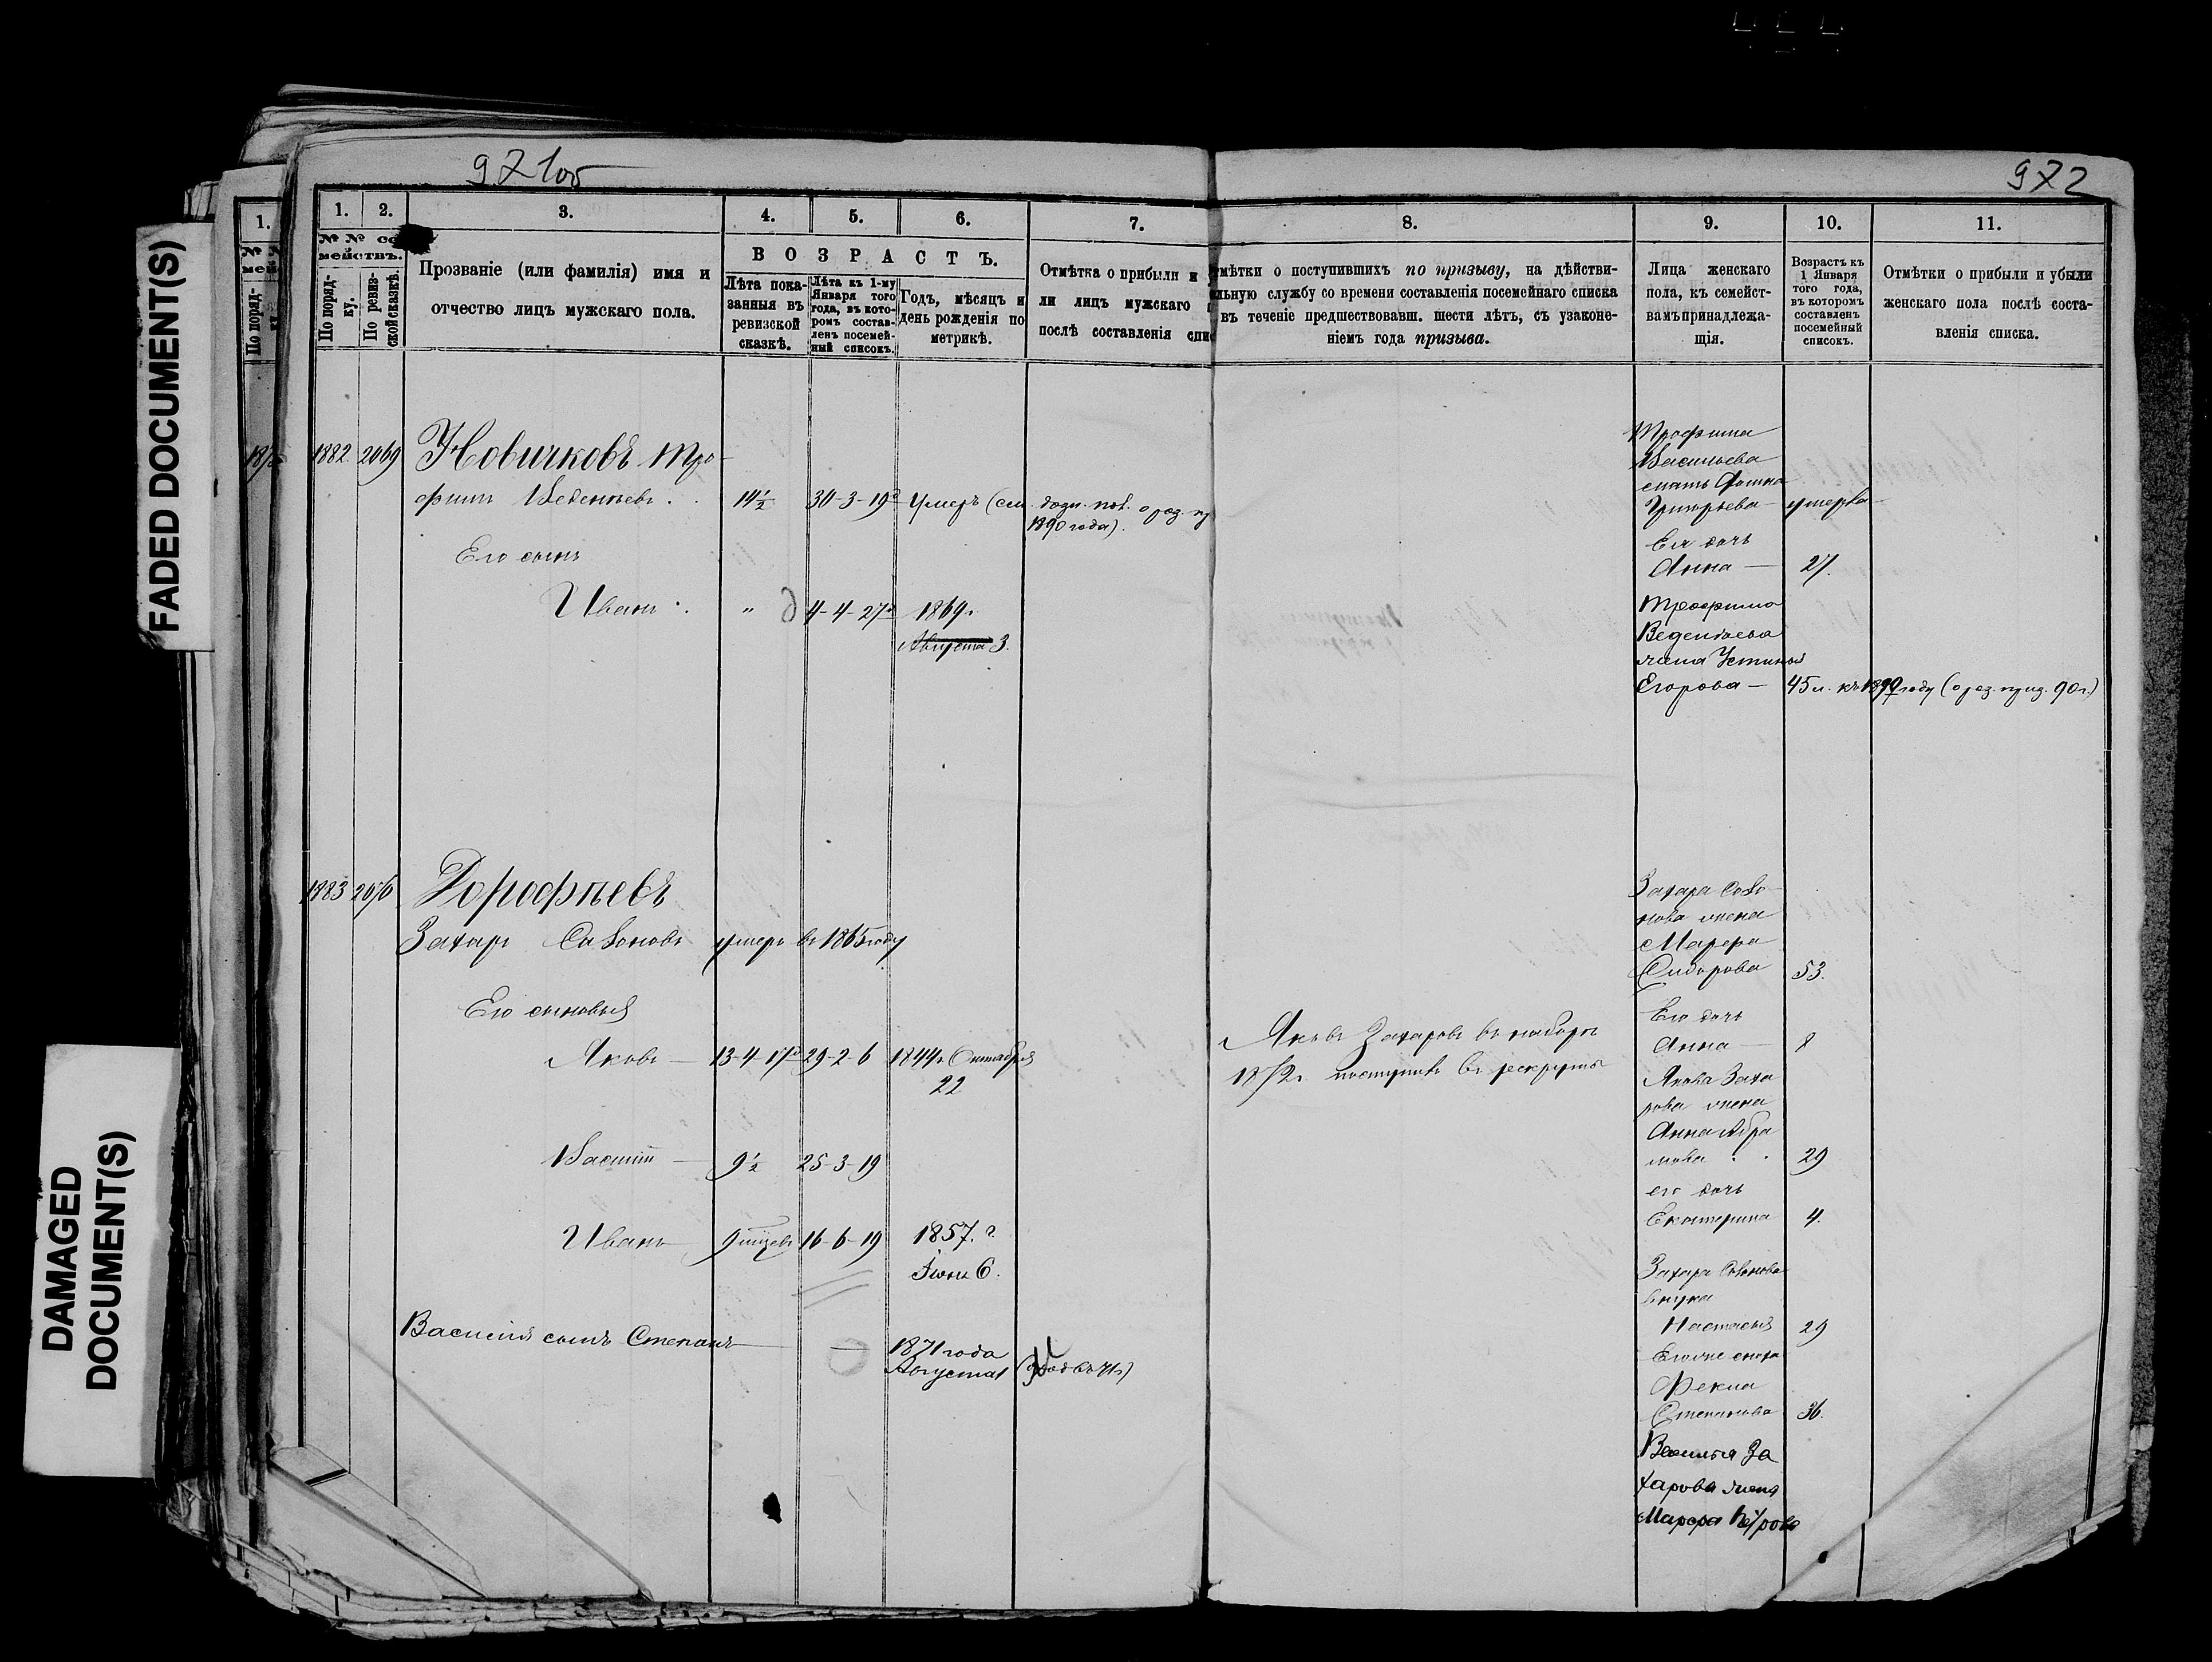 FADED DOCUMENT(S)
DAMAGED
DOCUMENT(S)
971об
972
1.
2.
3.
4.
5.
6.
7.
8.
9.
10.
11.
№ № се
мействъ.
По поряд-
ку.
По ревиз-
ской сказкѣ.
Прозваніе (или фамилія) имя и
отчество лицъ мужскаго пола.
ВОЗРАСТЪ.
Лѣта пока-
занныя въ
ревизской
сказкѣ.
Лѣта къ 1-му
Января того
года, въ кото-
ромъ состав-
ленъ посемей-
ный списокъ.
Годъ, мѣсяцъ и
день рожденія по
метрикѣ.
Отмѣтка о прибыли и
ли лицъ мужскаго
послѣ составленія спи
мѣтки о поступившихъ по призыву, на дѣйстви-
льную службу со времени составленія посемейнаго списка
въ теченіе предшествовавш. шести лѣтъ, съ узаконе-
ніемъ года призыва.
Лица женскаго
пола, къ семейст-
вамъ принадлежа-
щія.
Возрастъ къ
1 Января
того года,
въ которомъ
составленъ
посемейный
списокъ.
Отмѣтки о прибыли и убыли
женскаго пола послѣ соста-
вленія списка.
1882 2069 Новичковъ Тро-
фимъ Веденеевъ 14½ 30-3-19 Умеръ (см.
1890 года).
Его сынъ
Иванъ " 4-4-27 1869г.
Августа 3.
Трофима
Васильева
Григорьева умерла
Ея дочь
Анна — 27.
Трофима
Веденѣева
жена Устинья
Егорова — 45 л. къ 1890 году (о раз. приз. 90г.)
1883 2070 Дорофѣевъ
Захаръ Савоновъ умеръ въ 1865 году
Его сыновья
Яковъ — 13-4-17 29-2-6 1844г. Октября
22
Яковъ Захаровъ въ наборъ
1872г. поступилъ въ рекруты
Василій — 9½ 25-3-19
Иванъ 16-6-19 1857.г.
Іюня 6.
Василія сынъ Степанъ — 1871 года
Августа 1
Захара Саво-
нова жена
Марфа
Сидорова 53.
Его дочь
Анна — 8
Якова Заха
рова жена
Анна Абра
мова 29
его дочь
Екатерина 4.
Захара Савонова
внука
Настасья 29
Его же сноха
Фекла
Степанова 36.
Василья За
харова жена
Марфа Петрова